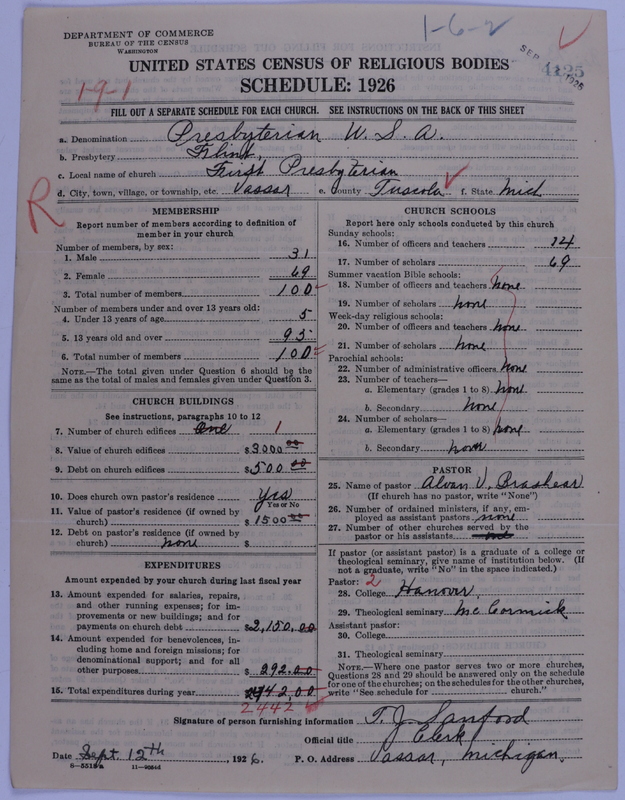 DEPARTMENT OF COMMERCE
BUREAU OF THE CENSUS
WASHINGTON
1-6-2
1-9-1
SEP
1926
4125
UNITED STATES CENSUS OF RELIGIOUS BODIES
SCHEDULE: 1926
FILL OUT A SEPARATE SCHEDULE FOR EACH CHURCH. SEE INSTRUCTIONS ON THE BACK OF THIS SHEET
a. Denomination Presbyterian U.S.A.
b. Presbytery Flint.
c. Local name of church First Presbyterian
d. City, town, village, or township, etc. Vassar e. County Tuscola f. State Mich
R
MEMBERSHIP
Report number of members according to definition of
member in your church
Number of members, by sex:
1. Male 31
2. Female 69
3. Total number of members 100
Number of members under and over 13 years old:
4. Under 13 years of age 5
5. 13 years old and over 95
6. Total number of members 100
NOTE.—The total given under Question 6 should be
same as the total of males and females given under Question 3.
CHURCH BUILDINGS
See instructions, paragraphs 10 to 12
7. Number of church edifices One 1
8. Value of church edifices $3000 00
9. Debt on church edifices $500 00
10. Does church own pastor's residence Yes
Yes or No
11. Value of pastor's residence (if owned by
church) $1500 00
12. Debt on pastor's residence (if owned by
church) none $
EXPENDITURES
Amount expended by your church during last fiscal year
13. Amount expended for salaries, repairs,
and other running expenses; for im-
provements or new buildings; and for
payments on church debt $2,150.00
14. Amount expended for benevolences, in-
cluding home and foreign missions; for
denominational support; and for all
other purposes $292.00
15. Total expenditures during year 42,00
2442
CHURCH SCHOOLS
Report here only schools conducted by this church
Sunday schools:
16. Number of officers and teachers 14
17. Number of scholars 69
Summer vacation Bible schools:
18. Number of officers and teachers none
19. Number of scholars none
Week-day religious schools:
20. Number of officers and teachers none
21. Number of scholars none
Parochial schools:
22. Number of administrative officers none
23. Number of teachers—
a. Elementary (grades 1 to 8) none
b. Secondary none
24. Number of scholars—
a. Elementary (grades 1 to 8) none
b. Secondary none
PASTOR
25. Name of pastor Alvan V. Brashear
(If church has no pastor, write "None")
26. Number of ordained ministers, if any, em-
ployed as assistant pastors none
27. Number of other churches served by the
pastor or his assistants
If pastor (or assistant pastor) is a graduate of a college or
theological seminary, give name of institution below. (If
not a graduate, write "No" in the space indicated.)
Pastor: 2
28. College Hanover
29. Theological seminary McCormick
Assistant pastor:
30. College
31. Theological seminary
NOTE.—Where one pastor serves two or more churches,
Questions 28 and 29 should be answered only on the schedule
for one of the churches; on the schedules for the other churches,
write "See schedule for church."
Signature of person furnishing information T. J. Sanford
Official title Clerk
Date Sept. 12th, 1926. P. O. Address Vassar, Michigan.